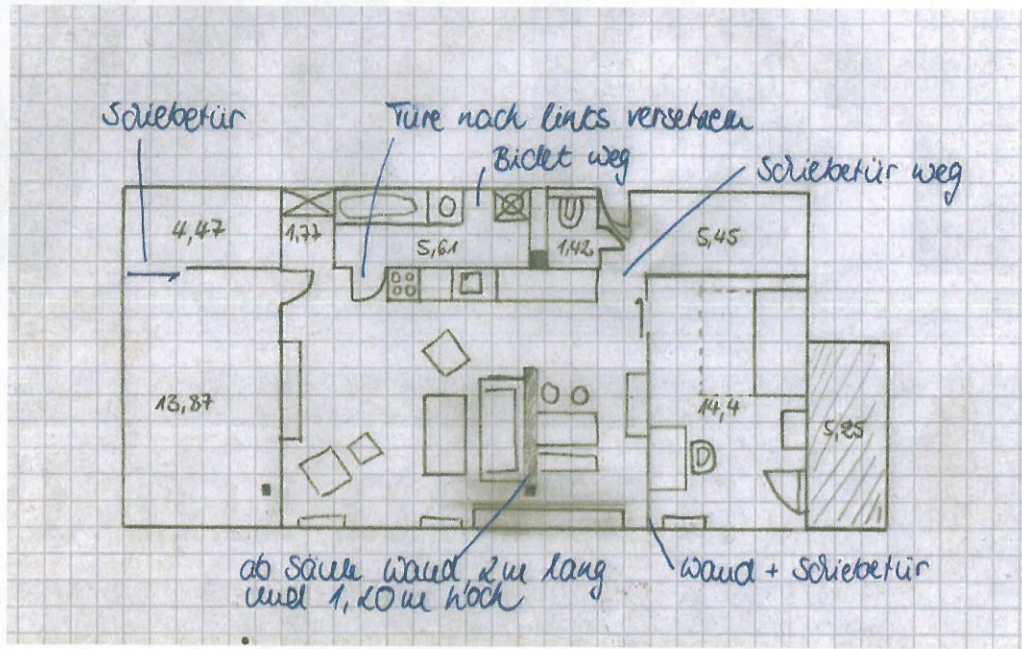 Schiebetür
Türe nach links versetzen
Bidet weg
Schiebetür weg
4,47
1,77
5,61
1,42
5,45
13,87
14,4
5,25
ab Säule Wand, 2m lang
und 1,20m hoch
Wand + Schiebetür